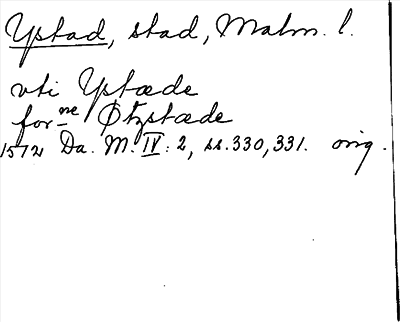 Ystad, stad, Malm. l.
vti Ystæde
for ne Øtzstæde
1572 Da. M. IV: 2, ss. 330, 331. orig.